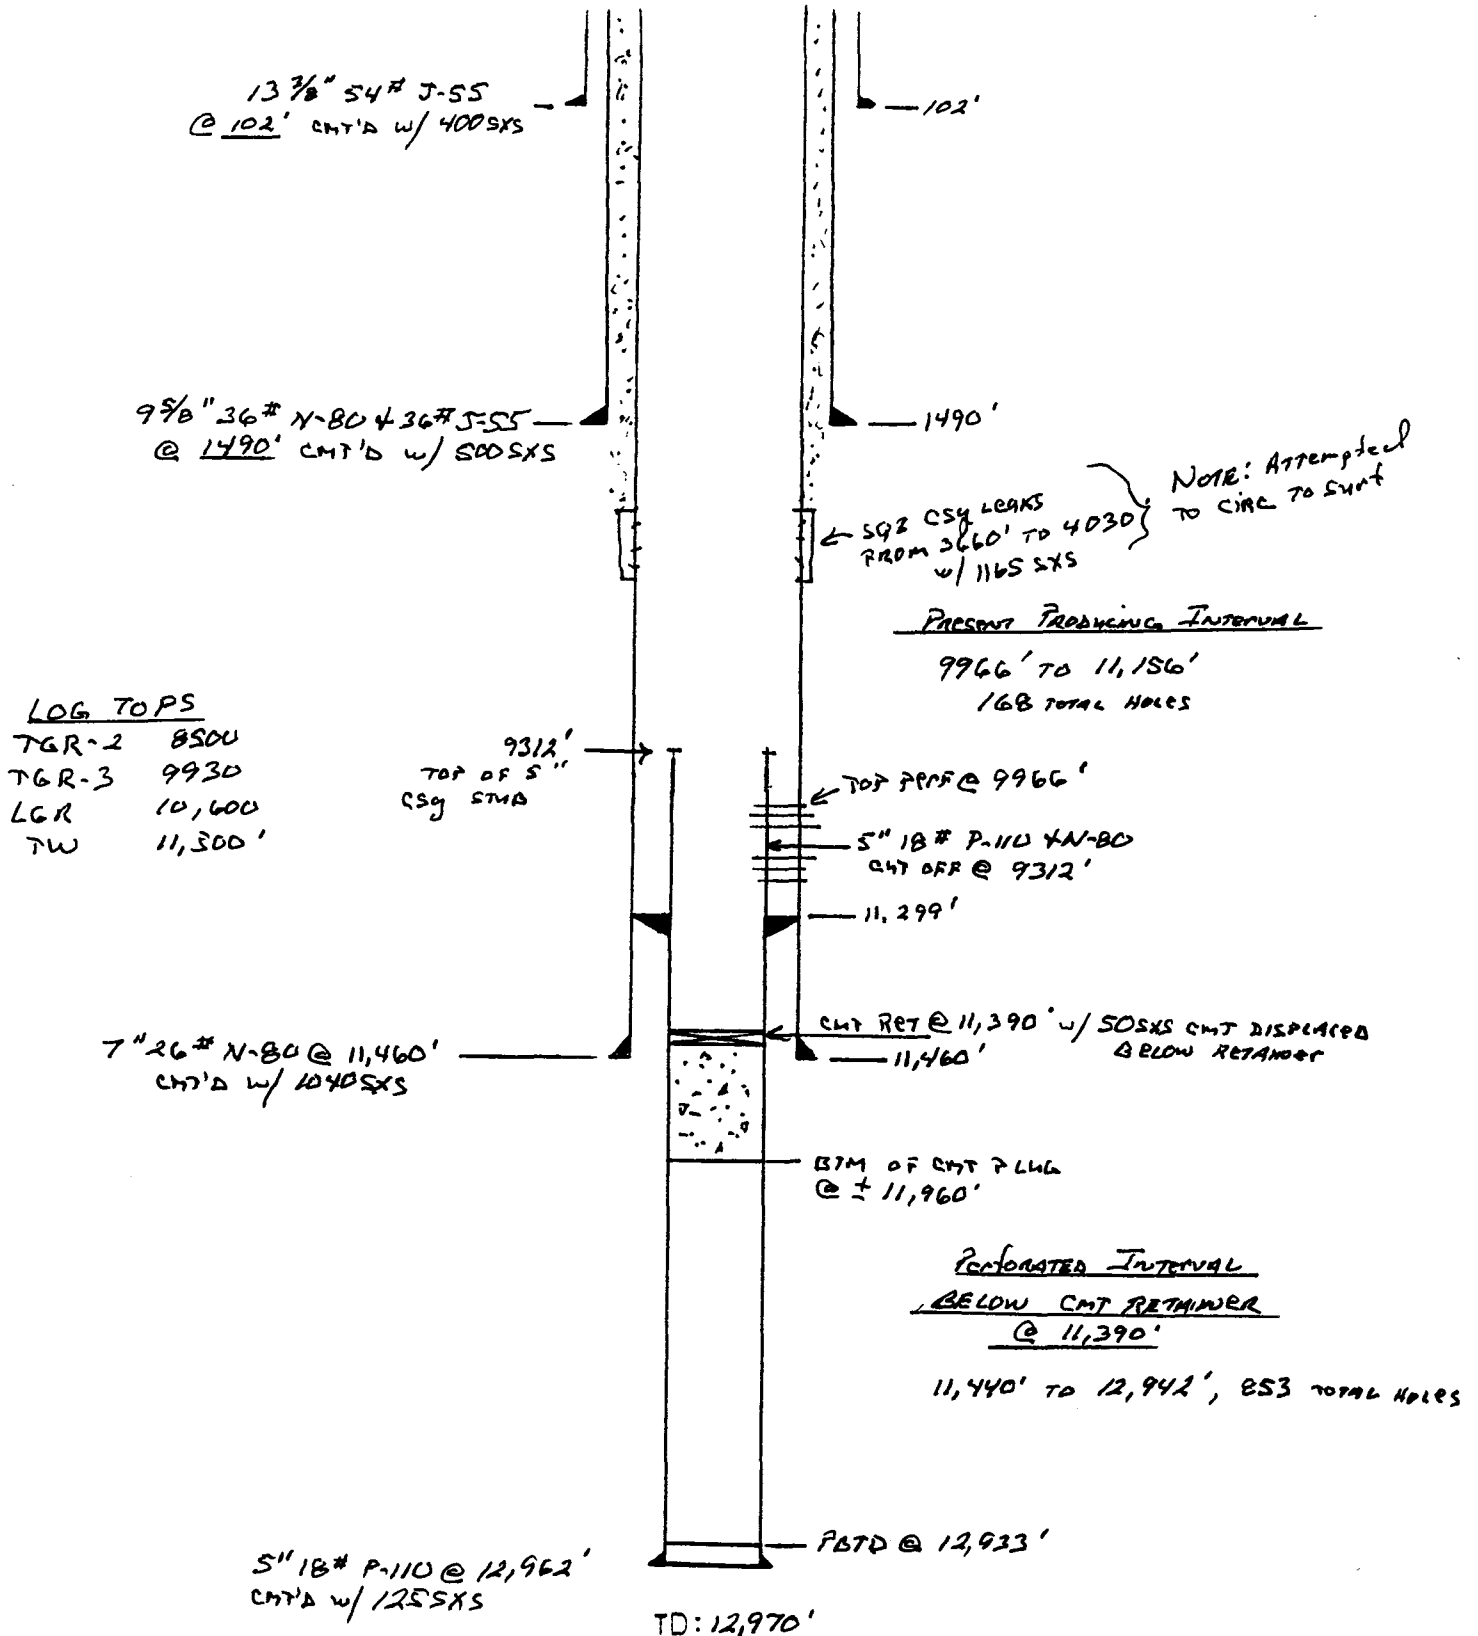 13 3/8" 54# J-55
@ 102' CMT'D w/ 400SXS
102'
9 5/8" 36# N-80 + 36# J-55
@ 1490' CMT'D w/ 500SXS
1490'
NOTE: ATTempted
TO CIRC TO Surf
SQZ CSG LEAKS
FROM 3660' TO 4030
w/ 1165 SXS
PRESENT PRODUCING INTERVAL
9966' TO 11,156'
168 TOTAL HOLES
LOG TOPS
TGR-2 8500
TGR-3 9930
LGR 10,600
TW 11,300'
9312'
TOP OF 5"
CSG STUB
TOP PERF @ 9966'
5" 18# P-110 + N-80
CUT OFF @ 9312'
11,299'
CMT RET @ 11,390' w/ 50SXS CMT DISPLACED
BELOW RETAINER
7" 26# N-80 @ 11,460'
CMT'D w/ 1040SXS
11,460'
BTM OF CMT PLUG
@ ± 11,960'
PERFORATED INTERVAL
BELOW CMT RETAINER
@ 11,390'
11,440' TO 12,942', 853 TOTAL HOLES
PBTD @ 12,933'
5" 18# P-110 @ 12,962'
CMT'D w/ 125SXS
TD: 12,970'